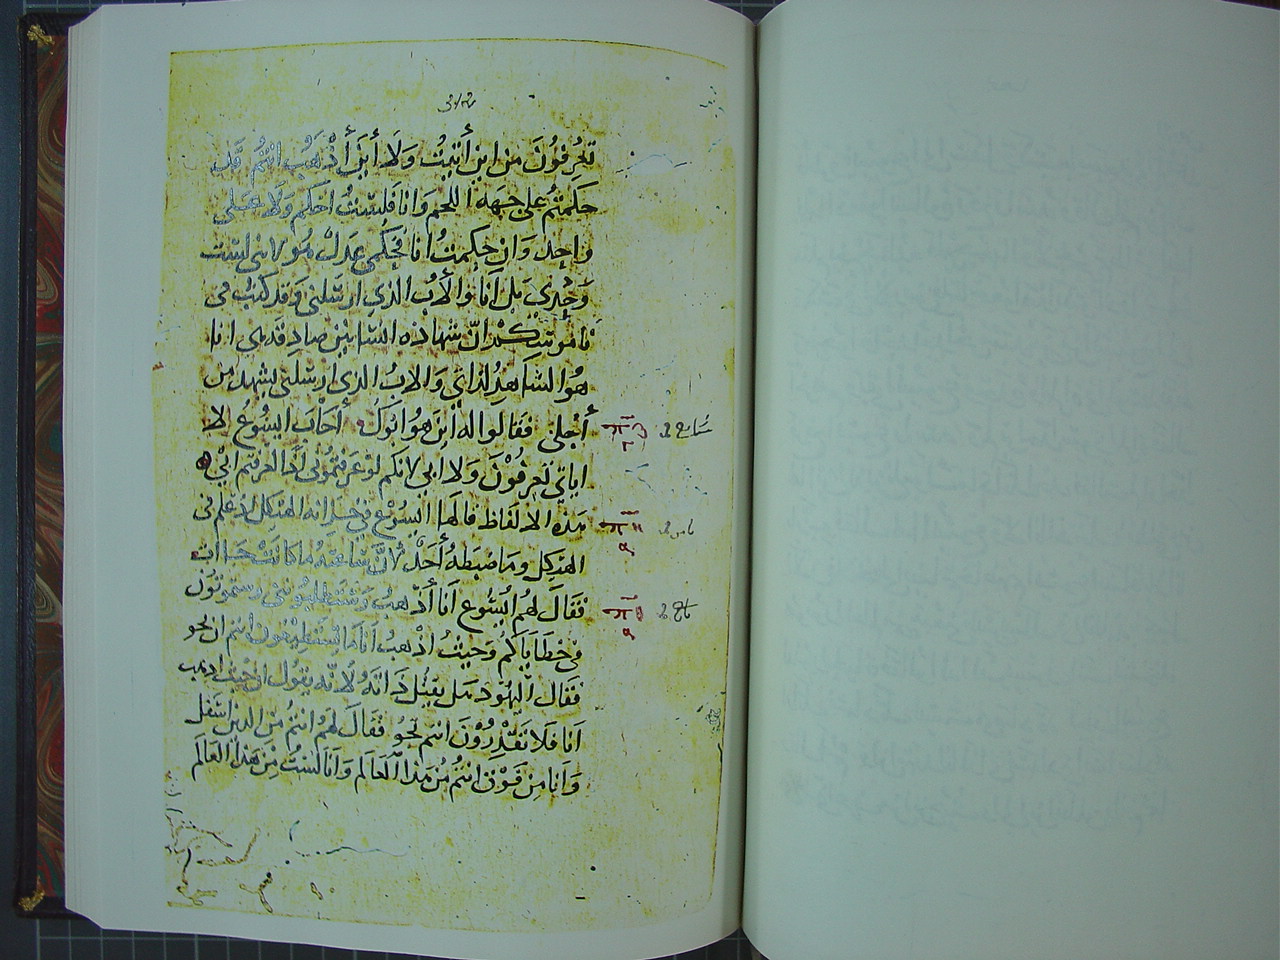 تعرفون من اين أتيت وَلَا أين أذهب انتم قد
حكمتم على جهه اللحم وانا فلست احكم ولا على
واحد وان حكمت انا فحكمى عدل هو لانى لست
وَحْدِي بل انا والأب الذي ارسلنى وقد كتب فى
ناموسكم ان شهاده انسانين صادقه هى انا
هو الشاهد لذاتي والاب الذي ارسلني يشهد من
أجلي فقالوا له اين هو ابوك أجاب ايسوع لا
اياي تعرفون ولا أبي لانكم لو عرفتموني لعرفتم ابي
هذه الالفاظ قالها ايسوع في خزانه الهيكل اذ علم فى
الهيكل وما ضبطه أحد لأن ساعته ما كانت جاات
فقال لهم ايسوع أنا أذهب وستطلبونني وستموتون
في خطاياكم وحيث اذهب أنا ما تستطيعون انتم ان تجو
فقال اليهود هل يقتل ذاته لانه يقول ان حيث اذهب
انا فلا تقدرون انتم تجو فقال لهم انتم من الذين اسفل
وأنا من فوق انتم من هذا العالم وأنا لست من هذا العالم